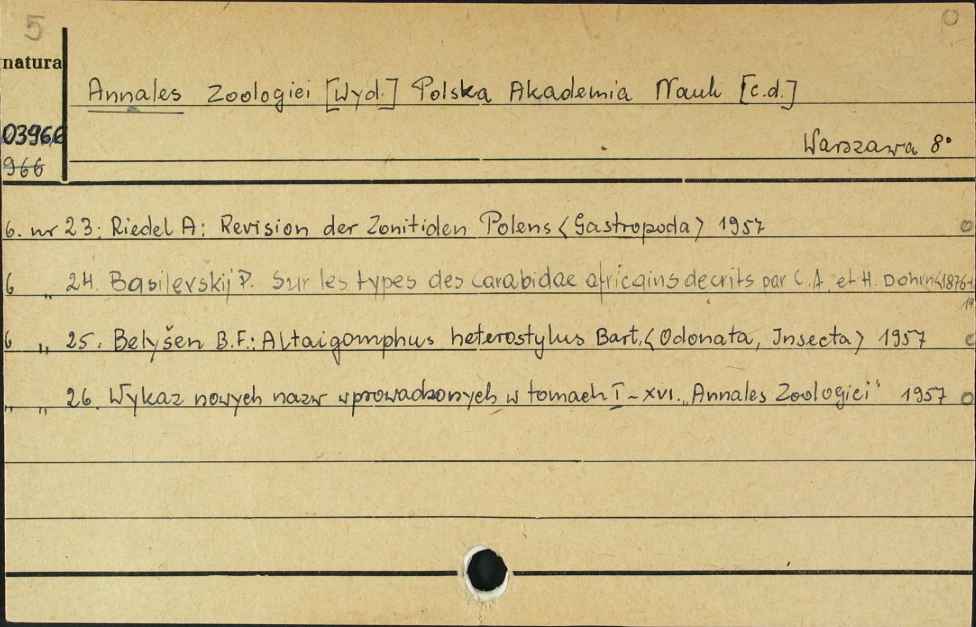 5
natura
Annales Zoologiei [Wyd.] Polska Akademia Nauk [c.d.]
03966
966
Warszawa 8°
6. nr 23: Riedel A: Revision der Zonitiden Polens <Gastropoda> 1957
6 „ 24. Basilevskij P. Sur les types des carabidae africains decrits par C.A. et H. Dohrn <1876
6 „ 25. Belyšen B.F.: Altaigomphus heterostylus Bart. <Odonata, Insecta> 1957
„ „ 26. Wykaz nowych nazw wprowadzonych w tomach I - XVI. „Annales Zoologiei" 1957